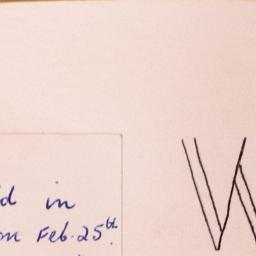 in
on Feb. 25th.
W